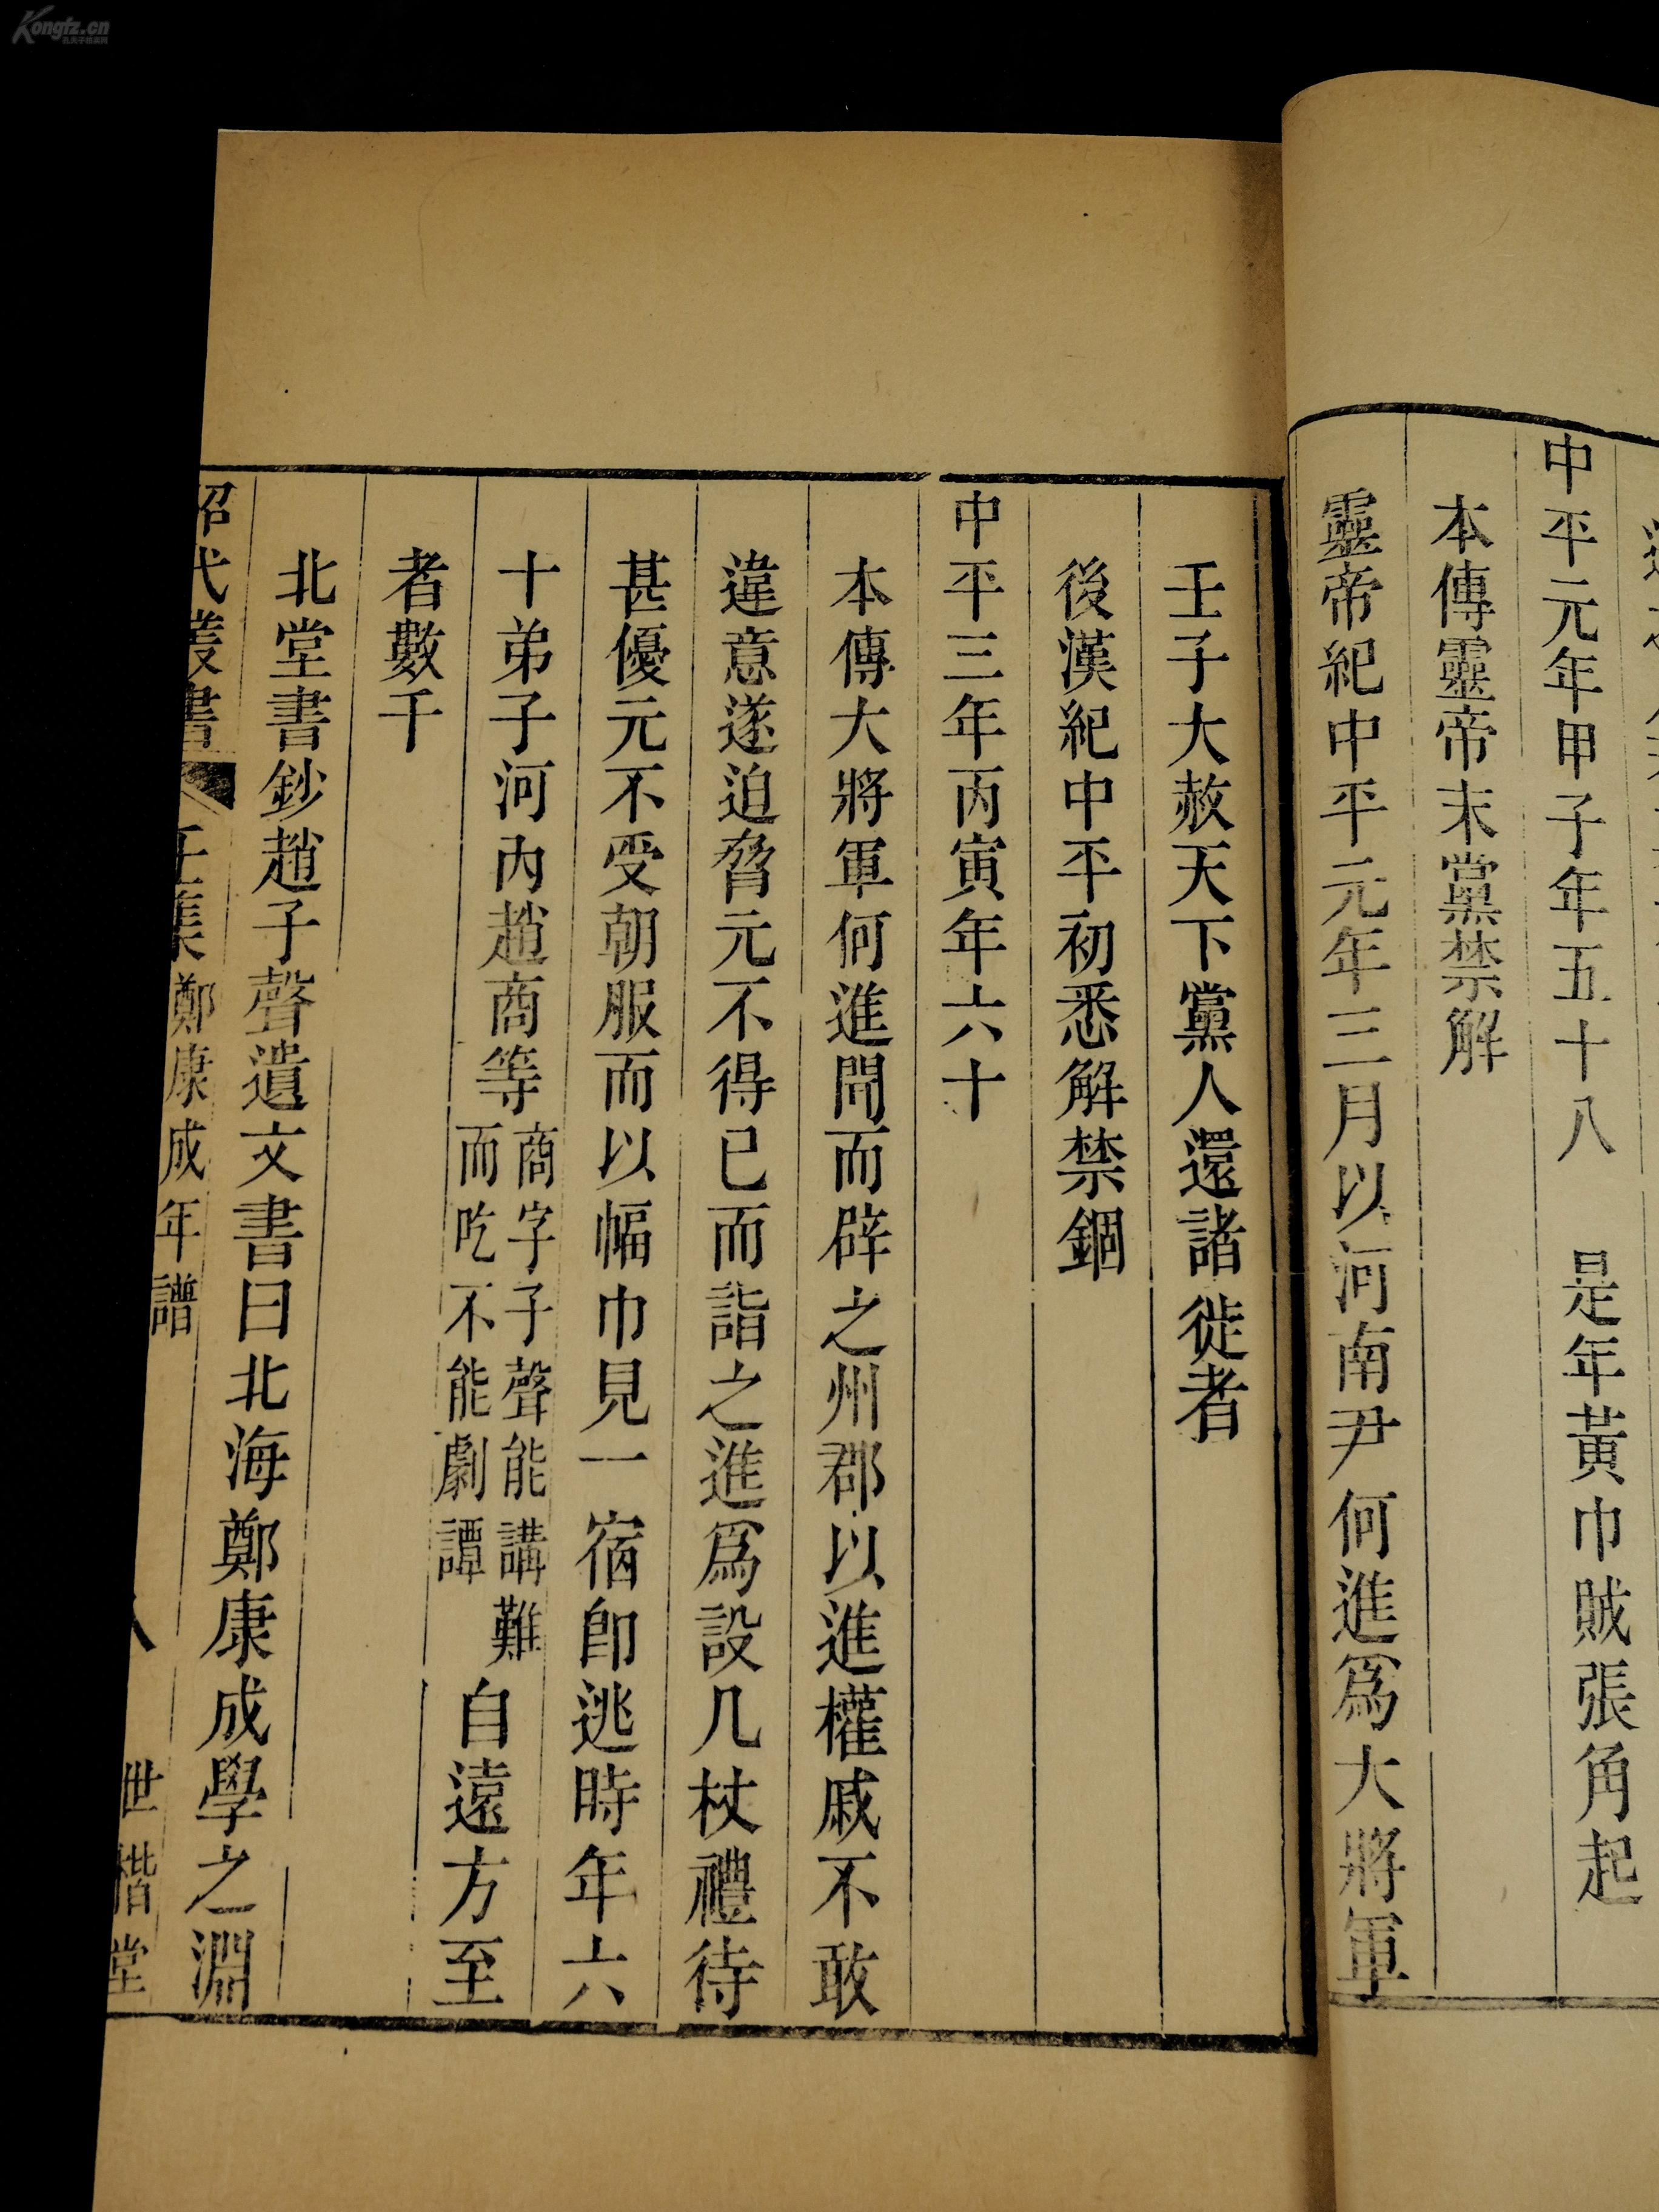 中平元年甲子年五十八 是年黃巾賊張角起
本傳靈帝末黨禁解
靈帝紀中平元年三月以河南尹何進爲大將軍
壬子大赦天下黨人還諸徙者
後漢紀中平初悉解禁錮
中平三年丙寅年六十
本傳大將軍何進聞而辟之州郡以進權戚不敢
違意遂迫脅元不得已而詣之進爲設几杖禮待
甚優元不受朝服而以幅巾見一宿卽逃時年六
十弟子河內趙商等商字子聲能講難而吃不能劇譚自遠方至
者數千
北堂書鈔趙子聲遺文書曰北海鄭康成學之淵
昭代叢書 壬集鄭康成年譜 八 世楷堂
Kongfz.cn